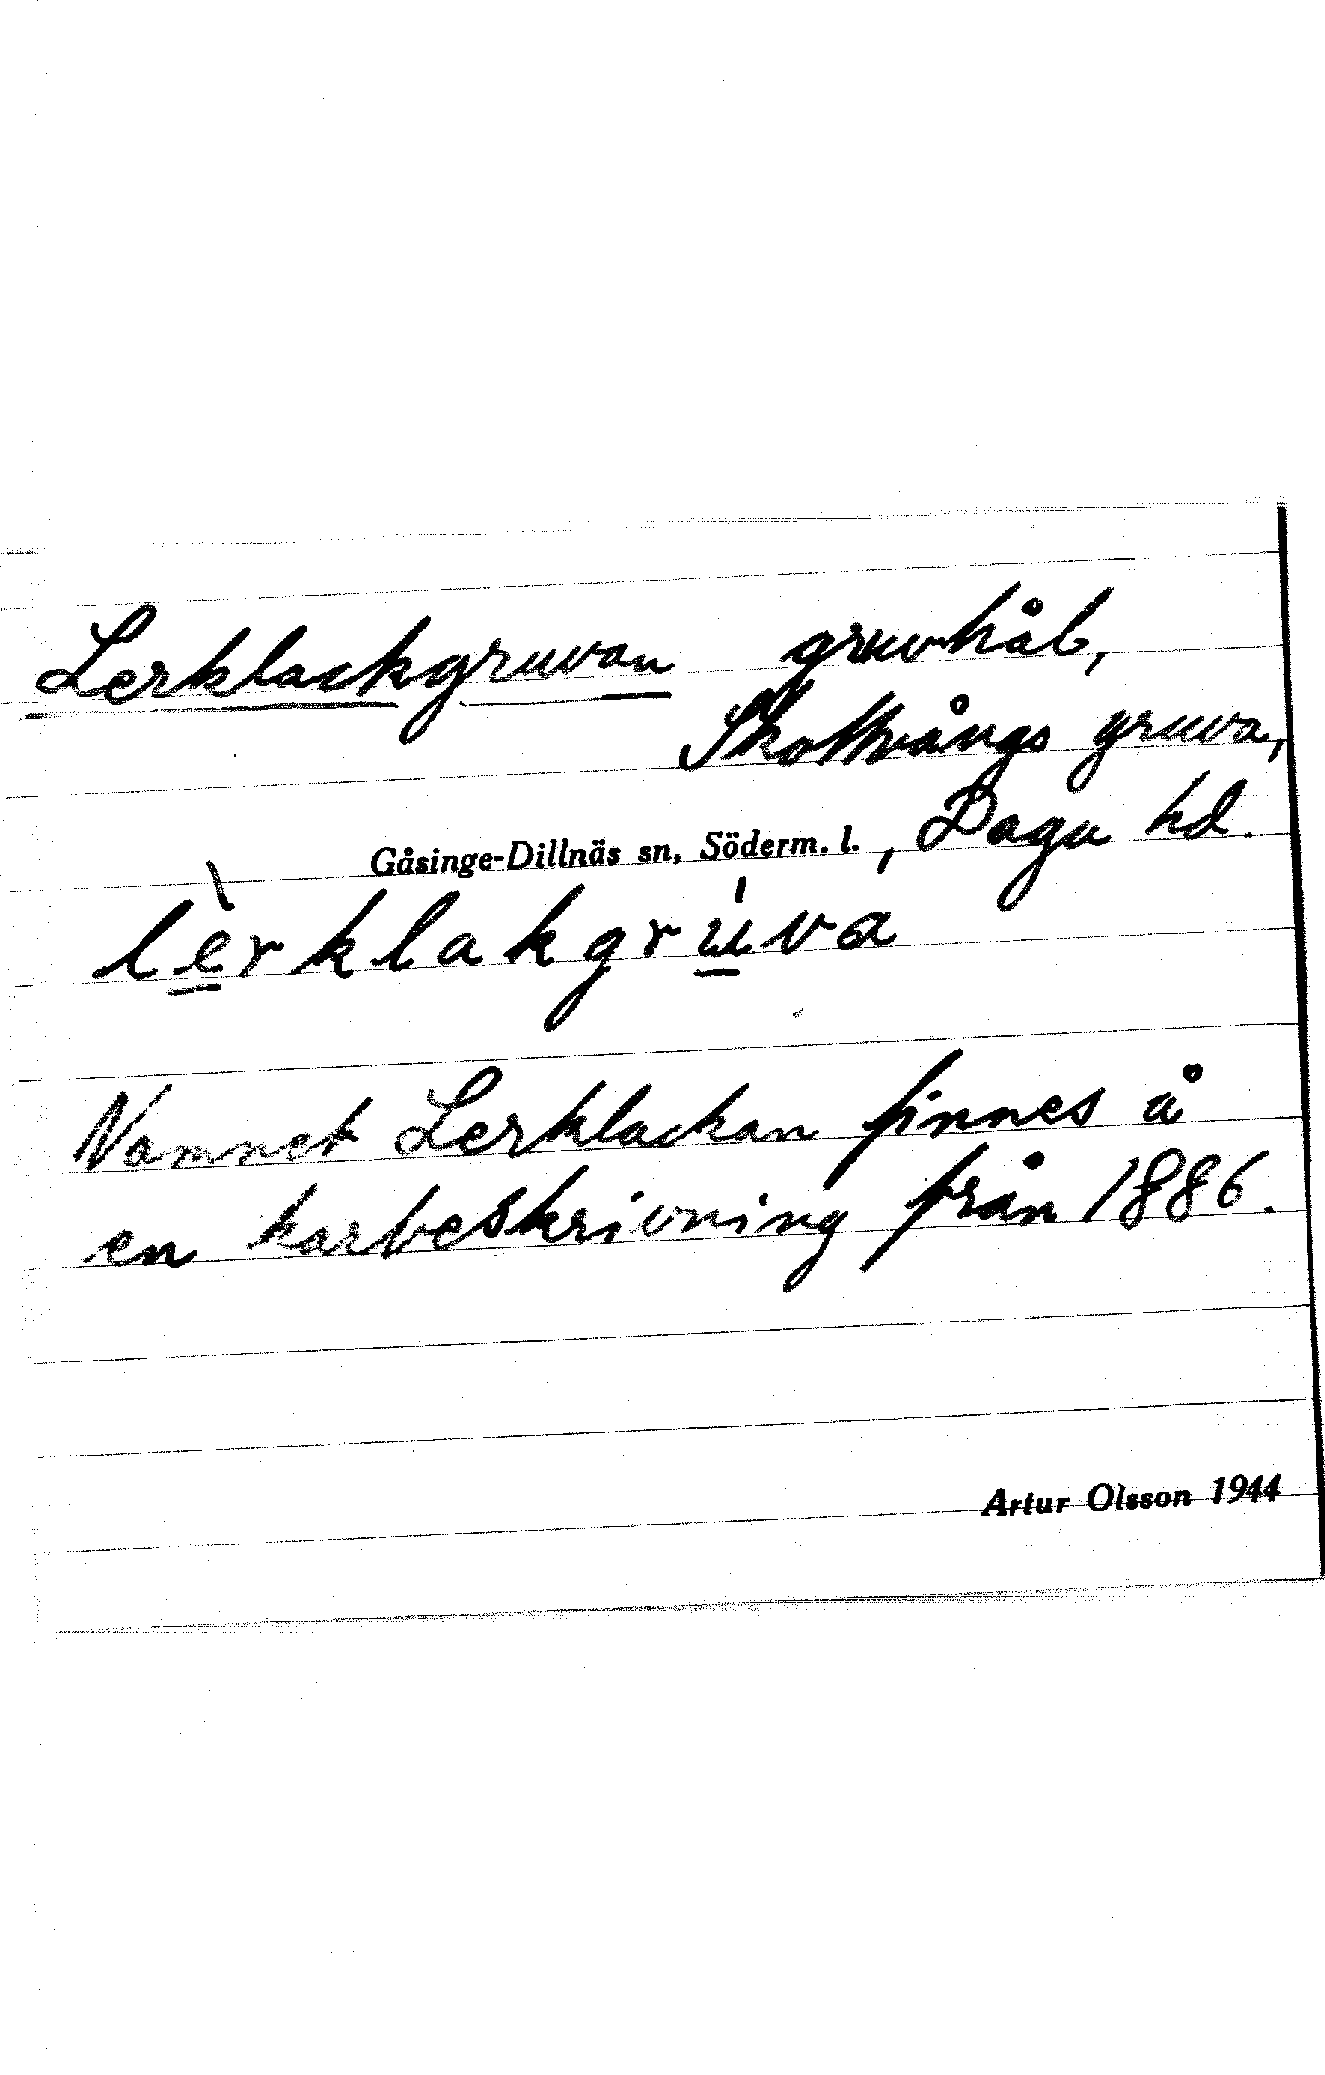 Lerklackgruvan gruvhål,
Skottvångs gruva,
Gåsinge-Dillnäs sn, Söderm. l., Daga hd.
lèrklakgrúva
Namnet Lerklackan finnes å
en karbeskrivning från 1886.
Artur Olsson 1944